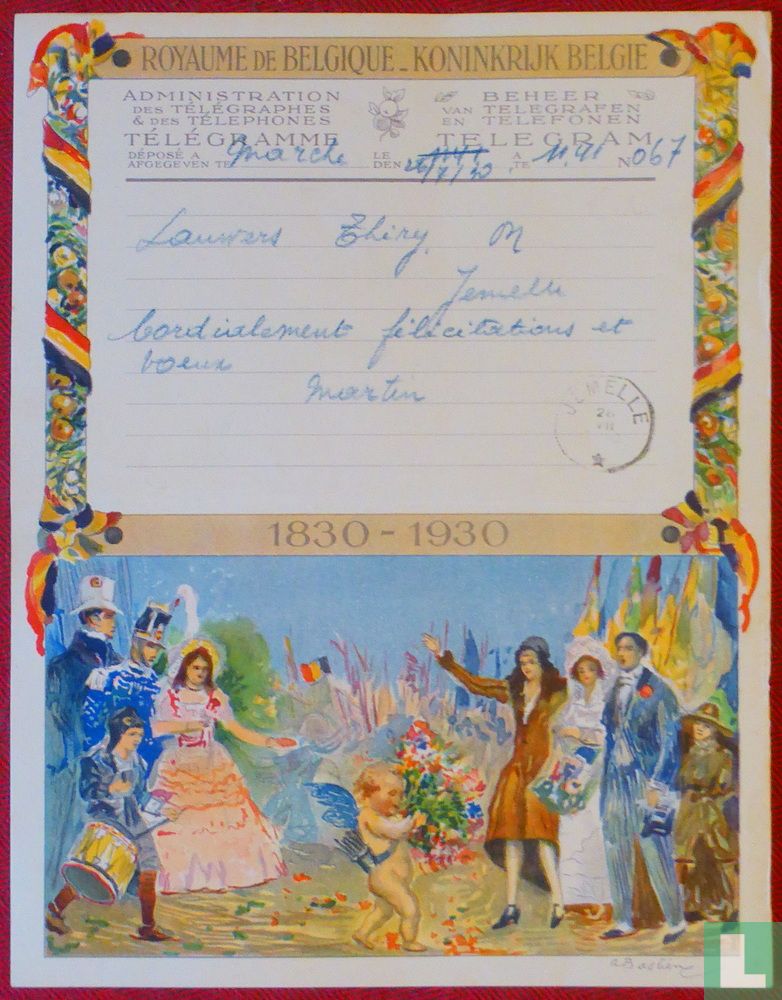 ROYAUME DE BELGIQUE - KONINKRIJK BELGIE
ADMINISTRATION
DES TÉLÉGRAPHES
& DES TÉLÉPHONES
TÉLÉGRAMME
BEHEER
VAN TELEGRAFEN
EN TELEFONEN
TELEGRAM
DÉPOSÉ A
AFGEGEVEN TE
Marche
LE
DEN
A
TE
11.41
No 067
Lauwers Thiry M
Jemelle
Cordialement félicitations et
voeux
Martin
JEMELLE
26
VII
1830 - 1930
ABastien
L